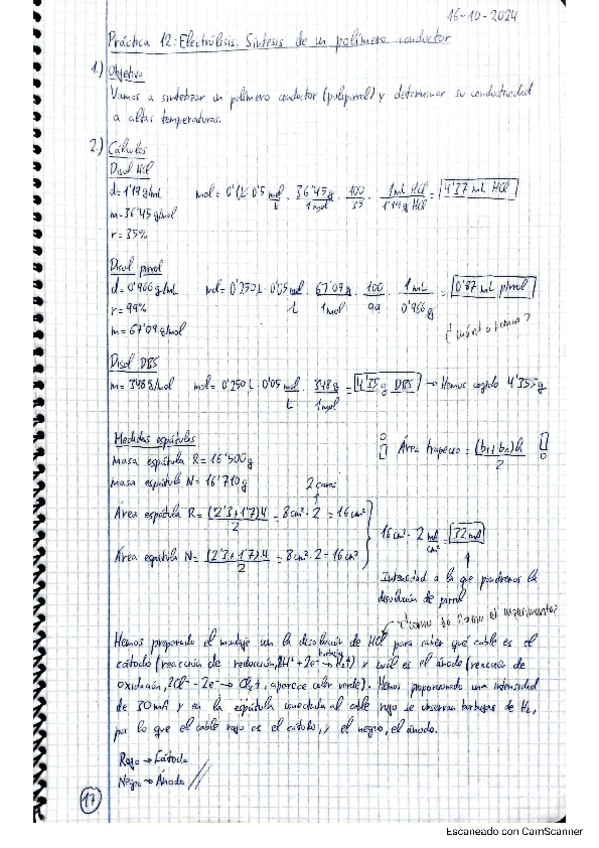 16-10-2024
Práctica 12: Electrólisis. Síntesis de un polímero conductor
1.) Objetivo
Vamos a sintetizar un polímero conductor (polipirrol) y determinar su conductividad
a altas temperaturas.
2.) Cálculos
Disol HCl
d= 1'19 g/mL
mol= 0'1L · 0'5 mol/L · 36'45g/1mol · 100/35 · 1mL HCl/1'19 g HCl = 4'37 mL HCl
m= 36'45 g/mol
r= 35%
Disol pirrol
d= 0'966 g/mL
mol= 0'250L · 0'05 mol/L · 67'09g/1mol · 100/99 · 1mL/0'966g = 0'87 mL pirrol
r= 99%
m= 67'09 g/mol
Disol DBS
m= 348 g/mol mol= 0'250L · 0'05 mol/L · 348g/1mol = 4'35 g DBS → Hemos cogido 4'355g
Medidas espátulas
masa espátula R= 16'500g
Área trapecio = (b₁+b₂)h/2
masa espátula N= 16'710g
2 caras
Área espátula R= (2'3+1'7)4/2 = 8cm² · 2 = 16cm²
16cm² · 2 mA/cm² = 32mA
Área espátula N= (2'3+1'7)4/2 = 8cm² · 2 = 16cm²
Intensidad a la que pondremos la
disolución de pirrol
Hemos preparado el montaje con la disolución de HCl para saber qué cable es el
cátodo (reacción de reducción, 2H⁺+2e⁻ → H₂↑) y cuál es el ánodo (reacción de
burbujas
oxidación, 2Cl⁻ - 2e⁻ → Cl₂↑, aparece color verde). Hemos proporcionado una intensidad
de 30mA y en la espátula conectada al cable rojo se observan burbujas de H₂,
por lo que el cable rojo es el cátodo, y el negro, el ánodo.
Rojo → Cátodo
Negro → Ánodo
17
Escaneado con CamScanner